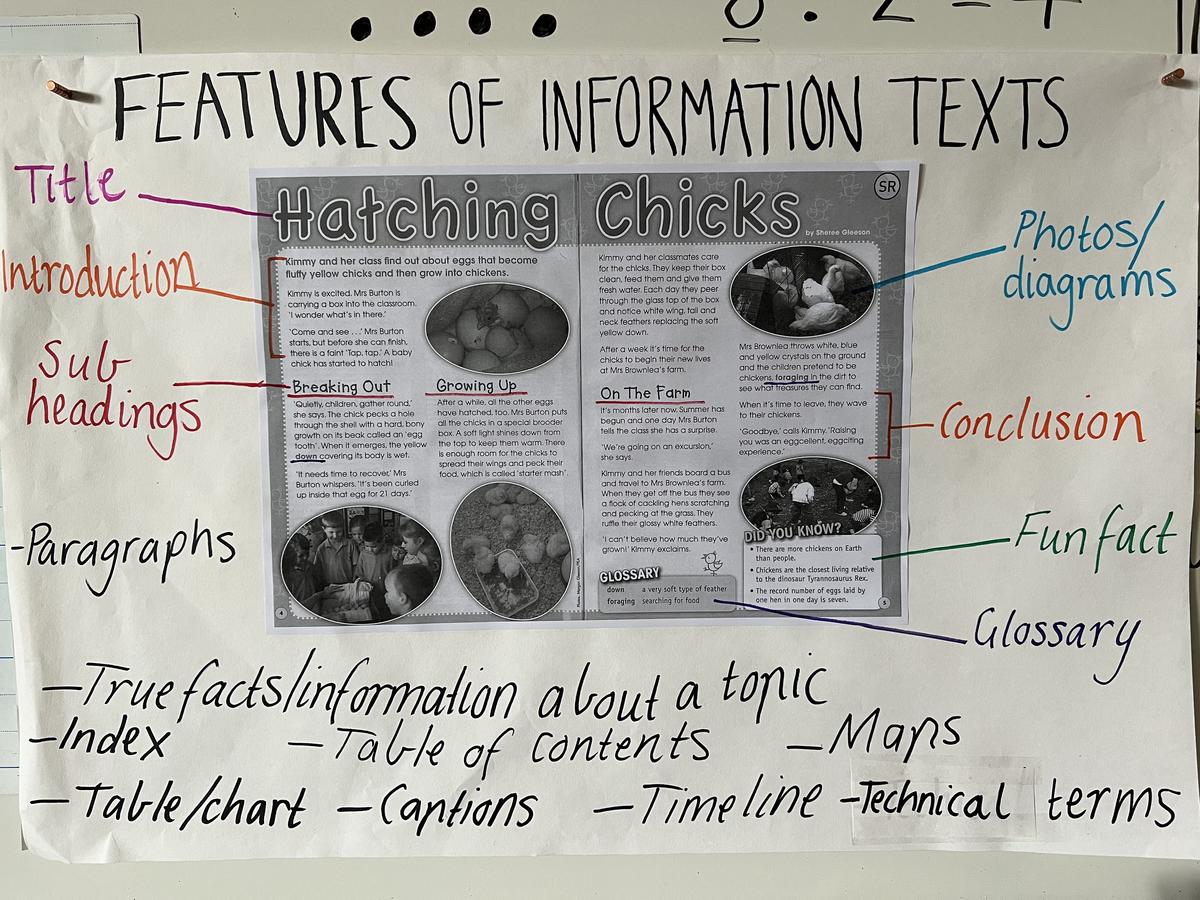 8 . 2 = 4
FEATURES OF INFORMATION TEXTS
Title
Introduction
Sub
headings
-Paragraphs
Hatching Chicks
SR
by Sheree Gleeson
Kimmy and her class find out about eggs that become
fluffy yellow chicks and then grow into chickens.
Kimmy is excited. Mrs Burton is
carrying a box into the classroom.
'I wonder what's in there.'
'Come and see . . .' Mrs Burton
starts, but before she can finish,
there is a faint 'Tap, tap.' A baby
chick has started to hatch!
Breaking Out
'Quietly, children, gather round,'
she says. The chick pecks a hole
through the shell with a hard, bony
growth on its beak called an 'egg
tooth'. When it emerges, the yellow
down covering its body is wet.
'It needs time to recover,' Mrs
Burton whispers. 'It's been curled
up inside that egg for 21 days.'
Growing Up
After a while, all the other eggs
have hatched, too. Mrs Burton puts
all the chicks in a special brooder
box. A soft light shines down from
the top to keep them warm. There
is enough room for the chicks to
spread their wings and peck their
food, which is called 'starter mash'.
4
Kimmy and her classmates care
for the chicks. They keep their box
clean, feed them and give them
fresh water. Each day they peer
through the glass top of the box
and notice white wing, tail and
neck feathers replacing the soft
yellow down.
After a week it's time for the
chicks to begin their new lives
at Mrs Brownlea's farm.
On The Farm
It's months later now. Summer has
begun and one day Mrs Burton
tells the class she has a surprise.
'We're going on an excursion,'
she says.
Kimmy and her friends board a bus
and travel to Mrs Brownlea's farm.
When they get off the bus they see
a flock of cackling hens scratching
and pecking at the grass. They
ruffle their glossy white feathers.
'I can't believe how much they've
grown!' Kimmy exclaims.
GLOSSARY
down a very soft type of feather
foraging searching for food
Mrs Brownlea throws white, blue
and yellow crystals on the ground
and the children pretend to be
chickens, foraging in the dirt to
see what treasures they can find.
When it's time to leave, they wave
to their chickens.
'Goodbye,' calls Kimmy. 'Raising
you was an eggcellent, eggciting
experience.'
DID YOU KNOW?
• There are more chickens on Earth
than people.
• Chickens are the closest living relative
to the dinosaur Tyrannosaurus Rex.
• The record number of eggs laid by
one hen in one day is seven.
5
Photos/
diagrams
Conclusion
Fun fact
Glossary
—True facts/information about a topic
—Index —Table of contents —Maps
—Table/chart —Captions —Timeline -Technical terms